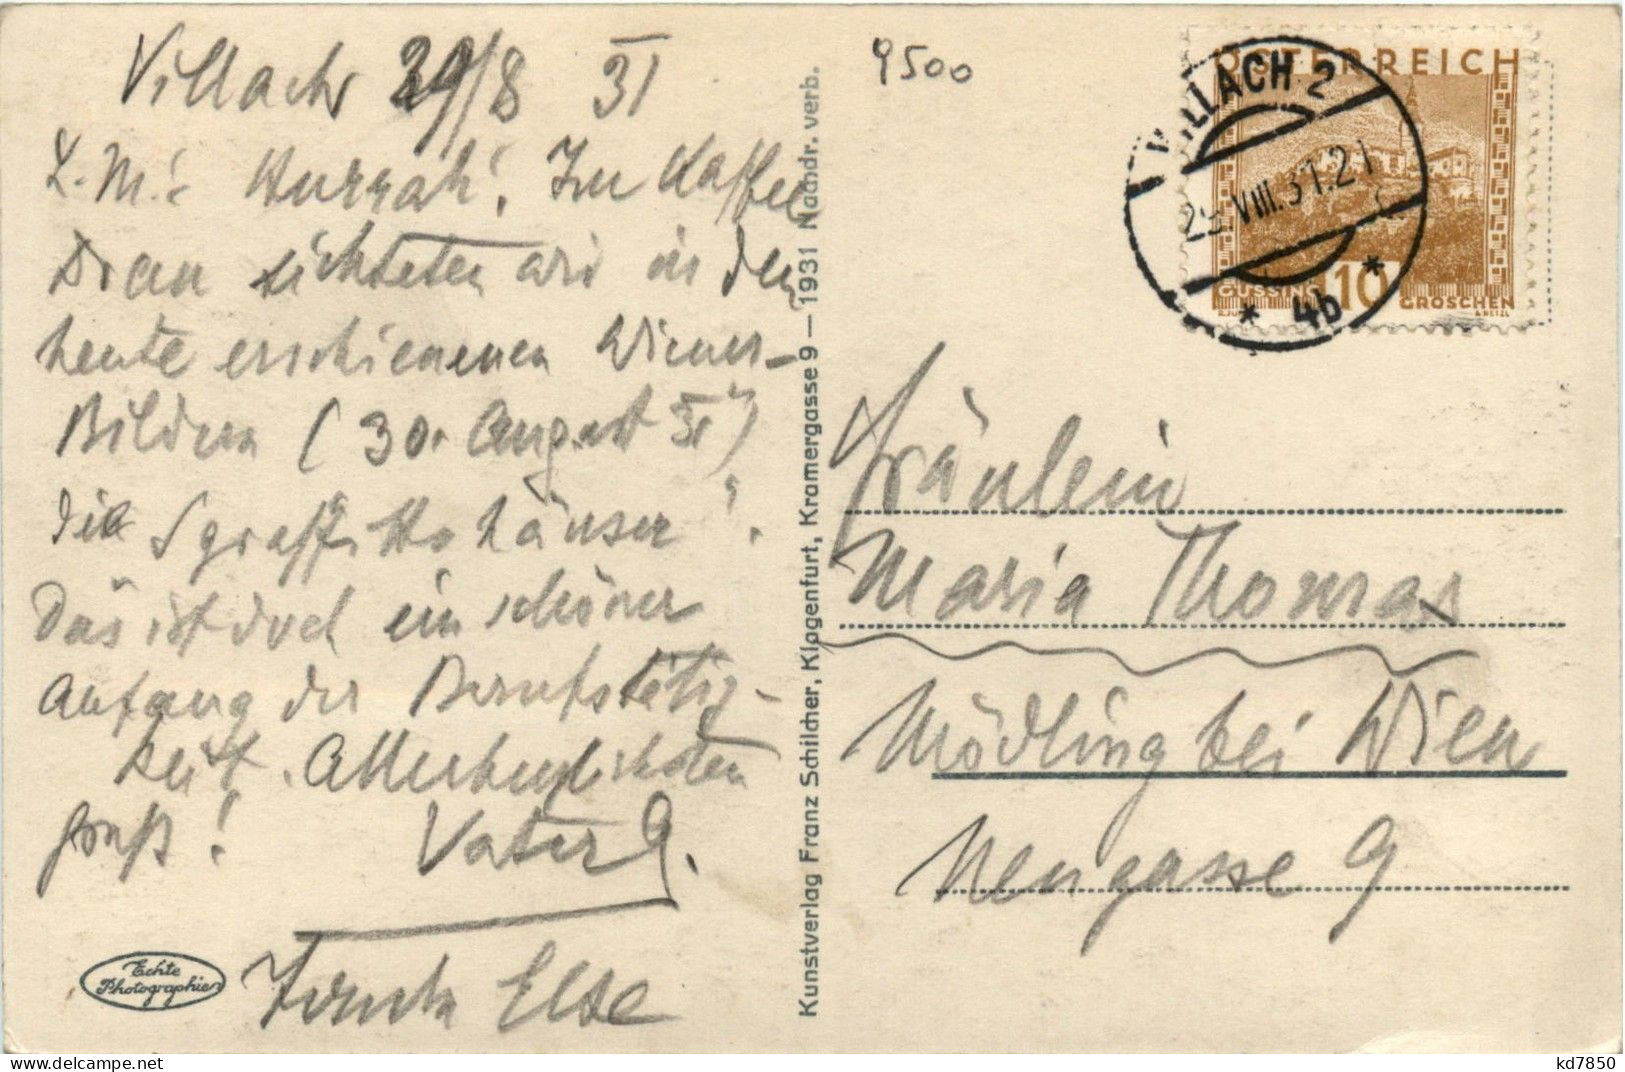 Villach 29/8 31
L. M.! Hurrah! Im Kaffee
Drau sichteten wir in den
heute erschienenen Wiener-
Bildern (30. August 31)
die Sgraffittohäuser!
Das ist doch ein schöner
Anfang der Berufstätig-
keit. Allerherzlichsten
Gruß! Vater G.
Else
Echte
Photographie
Kunstverlag Franz Schilcher, Klagenfurt, Kramergasse 9 — 1931 Nachdr. verb.
9500
ÖSTERREICH
GÜSSING 10 GROSCHEN
VILLACH 2
29.VIII.31.21
* 4b *
Fräulein
Maria Thomas
Mödling bei Wien
Neugasse 9
www.delcampe.net
kd7850